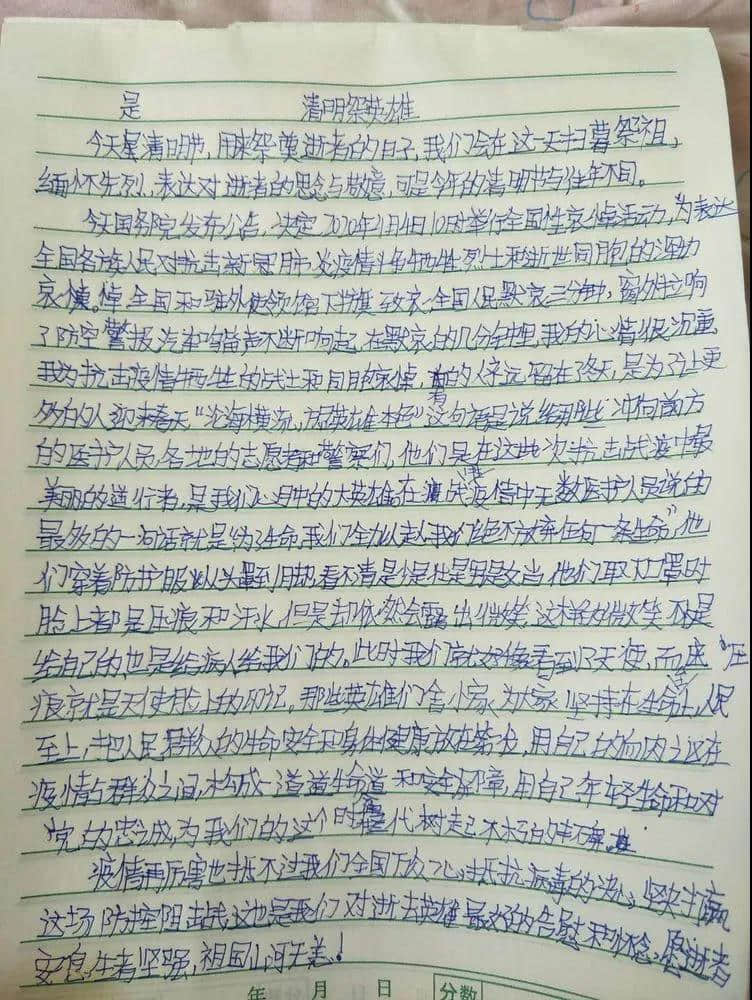 是 清明祭英雄
今天是清明节,用来祭奠逝者的日子,我们会在这一天扫墓祭祖,
缅怀先烈,表达对逝者的思念与敬意,可是今年的清明节与往年不同。
今天国务院发布公告,决定2020年4月4日10时举行全国性哀悼活动,为表达
全国各族人民对抗击新冠肺炎疫情斗争牺牲烈士和逝世同胞的深切
哀悼。悼全国和驻外使领馆下半旗致哀,全国人民默哀三分钟,窗外立响
了防空警报,汽车鸣笛声不断响起,在默哀的几分钟里,我的心情很沉重,
我为抗击疫情牺牲的战士和同胞哀悼,有的人永远留在了冬天,是为了让更
多的人迎来春天“沧海横流,方显英雄本色”这句话是说给那些冲向前方
的医护人员,各地的志愿者和警察们,他们是在这些次抗击战疫中最
美丽的逆行者,是我们心目中的大英雄。在这次疫情中无数医护人员说的
最多的一句话就是“为了生命,我们全力以赴,我们绝不放弃任何一条生命”,他
们穿着防护服从头罩到脚,看不清是少是壮是男是女当他们取下口罩时
脸上都是压痕和汗水,但是却依然会露出微笑,这样的微笑不是
给自己的,也是给病人给我们的。此时我们就好像看到了天使,而压
痕就是天使脸上的印记。那些英雄们舍小家,为大家坚持在生命上,人民
至上,把人民群众的生命安全和身体健康放在第一,用自己的血肉之
疫情与群众之间,构成一道道生命道和安全屏障,用自己年轻生命和对
党的忠诚,为我们的这个时代树起不朽的丰碑。
疫情再厉害也抵不过我们全国万众一心,抵抗病毒的决心,坚决打赢
这场防控阻击战这也是我们对逝去英雄最好的告慰和怀念,愿逝者
安息,生者坚强,祖国山河无恙!
年 月 日 分数